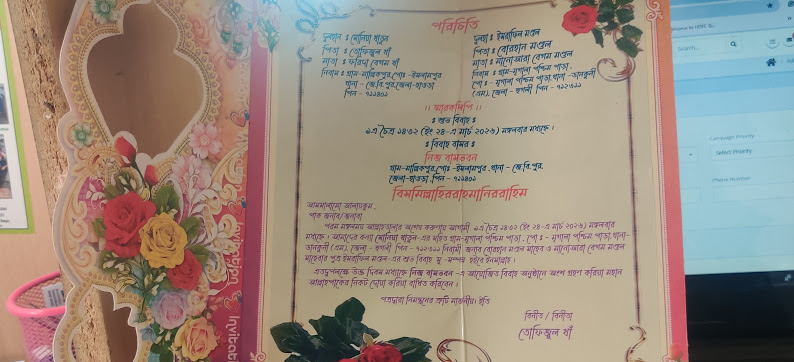 পরিচিতি
দুলহান ঃ মোনিয়া খাতুন
পিতা ঃ তোফিজুল খাঁ
মাতা ঃ ফরিদা বেগম খাঁ
নিবাস ঃ গ্রাম-মাল্লিকপুর,পোঃ -ইসলামপুর
থানা - জে.বি.পুর,জেলা-হাওড়া
পিন - ৭১১৪০১
দুলহা ঃ ইমরাফিল মণ্ডল
পিতা ঃ বোরহান মণ্ডল
মাতা ঃ মানোআরা বেগম মণ্ডল
নিবাস ঃ গ্রাম-মৃগালা পশ্চিম পাড়া,
পোঃ - মৃগালা পশ্চিম পাড়া,থানা -ডানকুনী
(এম), জেলা - হুগলী পিন - ৭১২৩১১
।। স্মারকলিপি ।।
ঃ শুভ বিবাহ ঃ
৯ই চৈত্র ১৪৩২ (ইং ২৪-এ মার্চ ২০২৬) মঙ্গলবার মধ্যাহ্নে ।
ঃ বিবাহ বাসর ঃ
নিজ বাসভবন
গ্রাম-মাল্লিকপুর,পোঃ -ইসলামপুর ,থানা - জে.বি.পুর,
জেলা-হাওড়া ,পিন - ৭১১৪০১
বিসমিল্লাহিররাহমানিররাহিম
আসসালামো আলাইকুম,
পাক জনাব/জনাবা
পরম মঙ্গলময় আল্লাহতালার অশেষ করুণায় আগামী ৯ই চৈত্র ১৪৩২ (ইং ২৪-এ মার্চ ২০২৬) মঙ্গলবার
মধ্যাহ্নে । আমাদের কন্যা মোনিয়া খাতুন-এর সহিত গ্রাম-মৃগালা পশ্চিম পাড়া , পোঃ - মৃগালা পশ্চিম পাড়া,থানা-
ডানকুনী (এম), জেলা - হুগলী পিন - ৭১২৩১১ নিবাসী জনাব বোরহান মণ্ডল সাহেব ও মানোআরা বেগম মণ্ডল
সাহেবার পুত্র ইমরাফিল মণ্ডল -এর শুভ বিবাহ সু-সম্পন্ন হইবে ইনশাল্লাহ ।
এতদুপলক্ষে উক্ত দিবস মধ্যাহ্নে নিজ বাসভবন -এ আয়োজিত বিবাহ অনুষ্ঠানে অংশ গ্রহণ করিয়া মহান
আল্লাহপাকের নিকট দোয়া করিয়া বাধিত করিবেন ।
পত্রদ্বারা নিমন্ত্রনের ত্রুটি মার্জনীয়। ইতি
বিনীত / বিনীতা
তোফিজুল খাঁ
Invitation
Search...
Campaign Priority
Select Priority
Phone Number